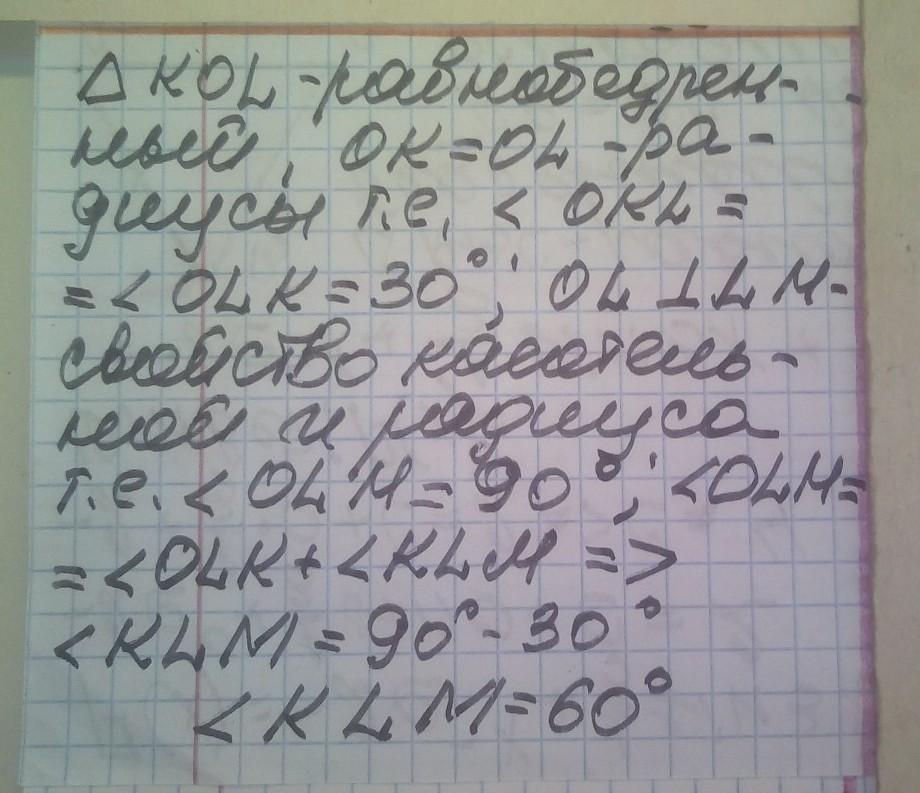 Δ KOL - равнобедрен-
ный, OK = OL - ра-
диусы т.е. < OKL =
= < OLK = 30°; OL ⊥ LM -
свойство касатель-
ной и радиуса
т.е. < OLM = 90°; < OLM =
= < OLK + < KLM =>
< KLM = 90° - 30°
< KLM = 60°